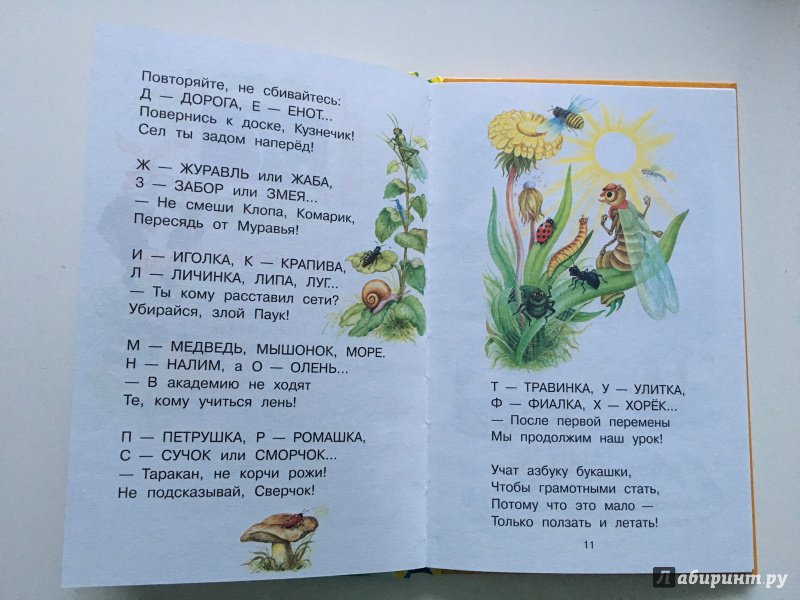 Повторяйте, не сбивайтесь:
Д — ДОРОГА, Е — ЕНОТ...
Повернись к доске, Кузнечик!
Сел ты задом наперёд!
Ж — ЖУРАВЛЬ или ЖАБА,
З — ЗАБОР или ЗМЕЯ...
— Не смеши Клопа, Комарик,
Пересядь от Муравья!
И — ИГОЛКА, К — КРАПИВА,
Л — ЛИЧИНКА, ЛИПА, ЛУГ...
— Ты кому расставил сети?
Убирайся, злой Паук!
М — МЕДВЕДЬ, МЫШОНОК, МОРЕ.
Н — НАЛИМ, а О — ОЛЕНЬ...
— В академию не ходят
Те, кому учиться лень!
П — ПЕТРУШКА, Р — РОМАШКА,
С — СУЧОК или СМОРЧОК...
— Таракан, не корчи рожи!
Не подсказывай, Сверчок!
Т — ТРАВИНКА, У — УЛИТКА,
Ф — ФИАЛКА, Х — ХОРЁК...
— После первой перемены
Мы продолжим наш урок!
Учат азбуку букашки,
Чтобы грамотными стать,
Потому что это мало —
Только ползать и летать!
11
Лабиринт.ру